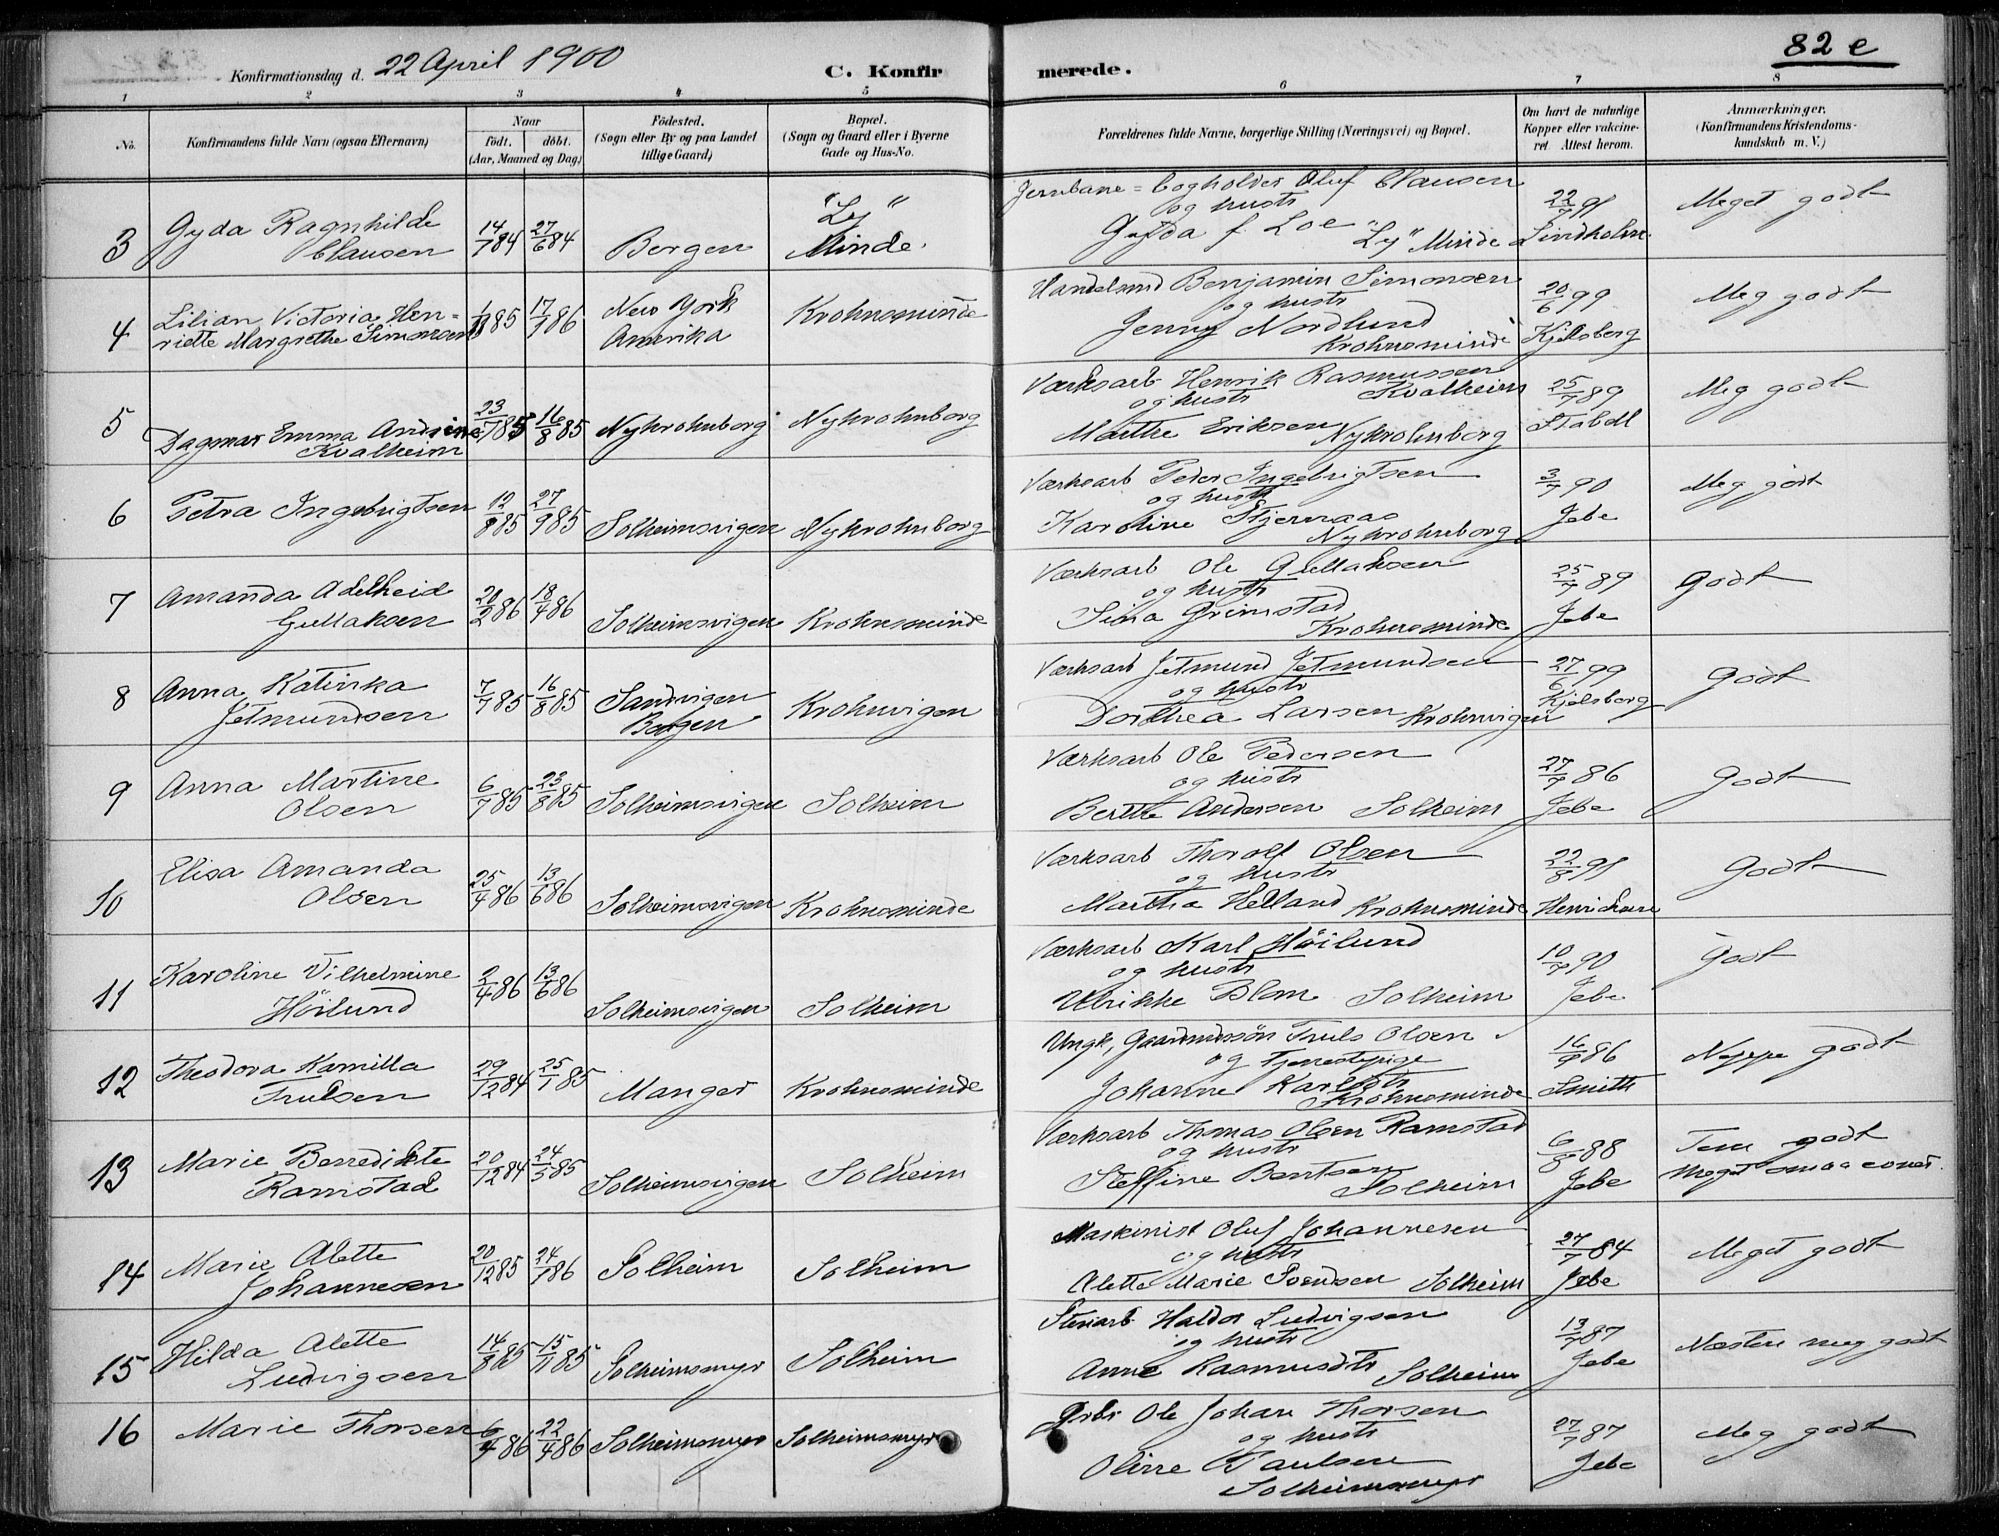 Konfirmationsdag d. 22 April 1900
C. Konfirmerede.
82 e
1 2 3 4 5 6 7 8
No.
Konfirmandens fulde Navn (ogsaa Efternavn)
Naar
födt. döbt.
(Aar, Maaned og Dag)
Födested.
(Sogn eller By og paa Landet
tillige Gaard)
Bopæl.
(Sogn og Gaard eller i Byerne
Gade og Hus-No.
Forældrenes fulde Navne, borgerlige Stilling (Næringsvei) og Bopæl.
Om havt de naturlige
Kopper eller vakcine-
ret. Attest herom.
Anmærkninger.
(Konfirmandens Kristendoms-
kundskab m. V.)
3 Gyda Ragnhilde
Clausen
14/7 84 27/6 84 Bergen
"Ly"
Minde.
Jernbane=bogholder Oluf Clausen
og hustr
Gyda f Loe "Ly" Minde
22/7 91
Lindholm
Meget godt
4 Lilian Victoria Hen-
riette Margrethe Simonsen
1/11 85 17/1 86
New York
Amerika
Krohnsminde
Handelsmd Benjamin Simonsen
og hustr
Jenny Nordlund
Krohnsminde
20/6 99
Kjelsberg
Meg godt
5 Dagmar Emma Andrine
Kvalheim
23/7 85 16/8 85 Nykrohnborg Nykrohnborg
Værksarb Henrik Rasmussen
Kvalheim
og hustr
Marthe Eriksen Nykrohnborg
25/7 89
Stabdl
Meg godt
6 Petra Ingebrigtsen 12/8 85 27/9 85 Solheimsvigen Nykrohnborg
Værksarb Peder Ingebrigtsen
og hustr
Karoline Stjernaas
Nykrohneborg
3/7 90
Jebe
Meg godt
7 Amanda Adelheid
Gullaksen
20/2 86 18/4 86 Solheimsvigen Krohnsminde
Værksarb Ole Gullaksen
og hustr
Sina Grimstad
Krohnsminde
25/7 89
Jebe
Godt
8 Anna Katinka
Jetmundsen
7/7 85 16/8 85
Sandvigen
Bergen
Krohnvigen
Værksarb Jetmund Jetmundsen
og hustr
Dorthea Larsen Krohnvigen
27/6 99
Kjelsberg
Godt
9 Anna Martine
Olsen
6/7 85 23/8 85 Solheimsvigen Solheim
Værksarb Ole Pedersen
og hustr
Berthe Andersen Solheim
27/7 86
Jebe
Godt
10 Elisa Amanda
Olsen
25/4 86 13/6 86 Solheimsvigen Krohnsminde
Værksarb Thorolf Olsen
og hustr
Martha Helland Krohnsminde
22/8 91
Henrichsen
Godt
11 Karoline Vilhelmine
Höilund
2/4 86 13/6 86 Solheimsvigen Solheim
Værksarb Karl Höilund
og hustr
Ulrikke Blom Solheim
10/7 90
Jebe
Godt
12 Theodora Kamilla
Trulsen
29/12 84 25/1 85 Manger Krohnsminde
Ungk, Gaardmdssön Truls Olsen
og Tjenestepige
Johanne Karlsdtr
Krohnsminde
16/9 86
Smith
Neppe godt
13 Marie Benedikte
Ramstad
20/12 84 24/5 85 Solheimsvigen Solheim
Værksarb Thomas Olsen Ramstad
og hustr
Steffine Bentsen
Solheim
6/8 88
Jebe
Tem godt
14 Marie Alette
Johannesen
20/12 85 24/1 86 Solheim Solheim
Maskinist Oluf Johannesen
og hustr
Alette Marie Svendsen Solheim
27/7 84
Jebe
Meget godt
15 Hilda Alette
Ludvigsen
14/8 85 15/11 85 Solheimsmyr Solheim
Stenarb Haldor Ludvigsen
og hustr
Anne Rasmusdtr Solheim
13/7 87
Jebe
Næsten meg godt
16 Marie Thorsen 6/4 86 22/4 86 Solheimsmyr Solheimsmyr
Grbr Ole Johan Thorsen
og hustr
Oline Paulsen
Solheimsmyr
27/7 87
Jebe
Meg godt